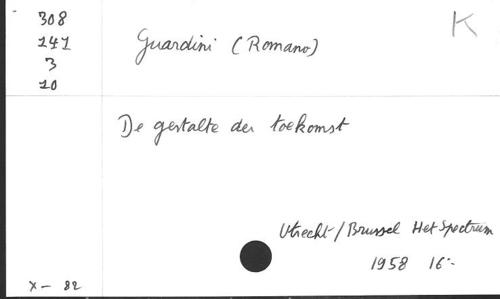 308
K
141
Guardini (Romano)
3
10
De gestalte der toekomst
Utrecht/Brussel Het Spectrum
1958 16:-
X- 82